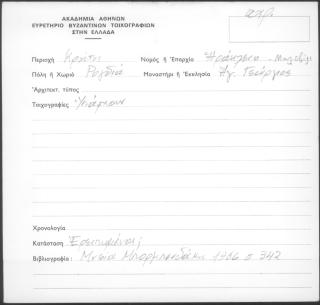 ΑΚΑΔΗΜΙΑ ΑΘΗΝΩΝ
ΕΥΡΕΤΗΡΙΟ ΒΥΖΑΝΤΙΝΩΝ ΤΟΙΧΟΓΡΑΦΙΩΝ
ΣΤΗΝ ΕΛΛΑΔΑ
Περιοχή Κρήτη Νομός ή Επαρχία Ηράκλειο - Μαλεβίζι
Πόλη ή Χωριό Ρογδιά Μοναστήρι ή Εκκλησία Αγ. Γεώργιος
Αρχιτεκτ. τύπος
Τοιχογραφίες Υπάρχουν
Χρονολογία
Κατάσταση
Βιβλιογραφία : 1906 σ 342